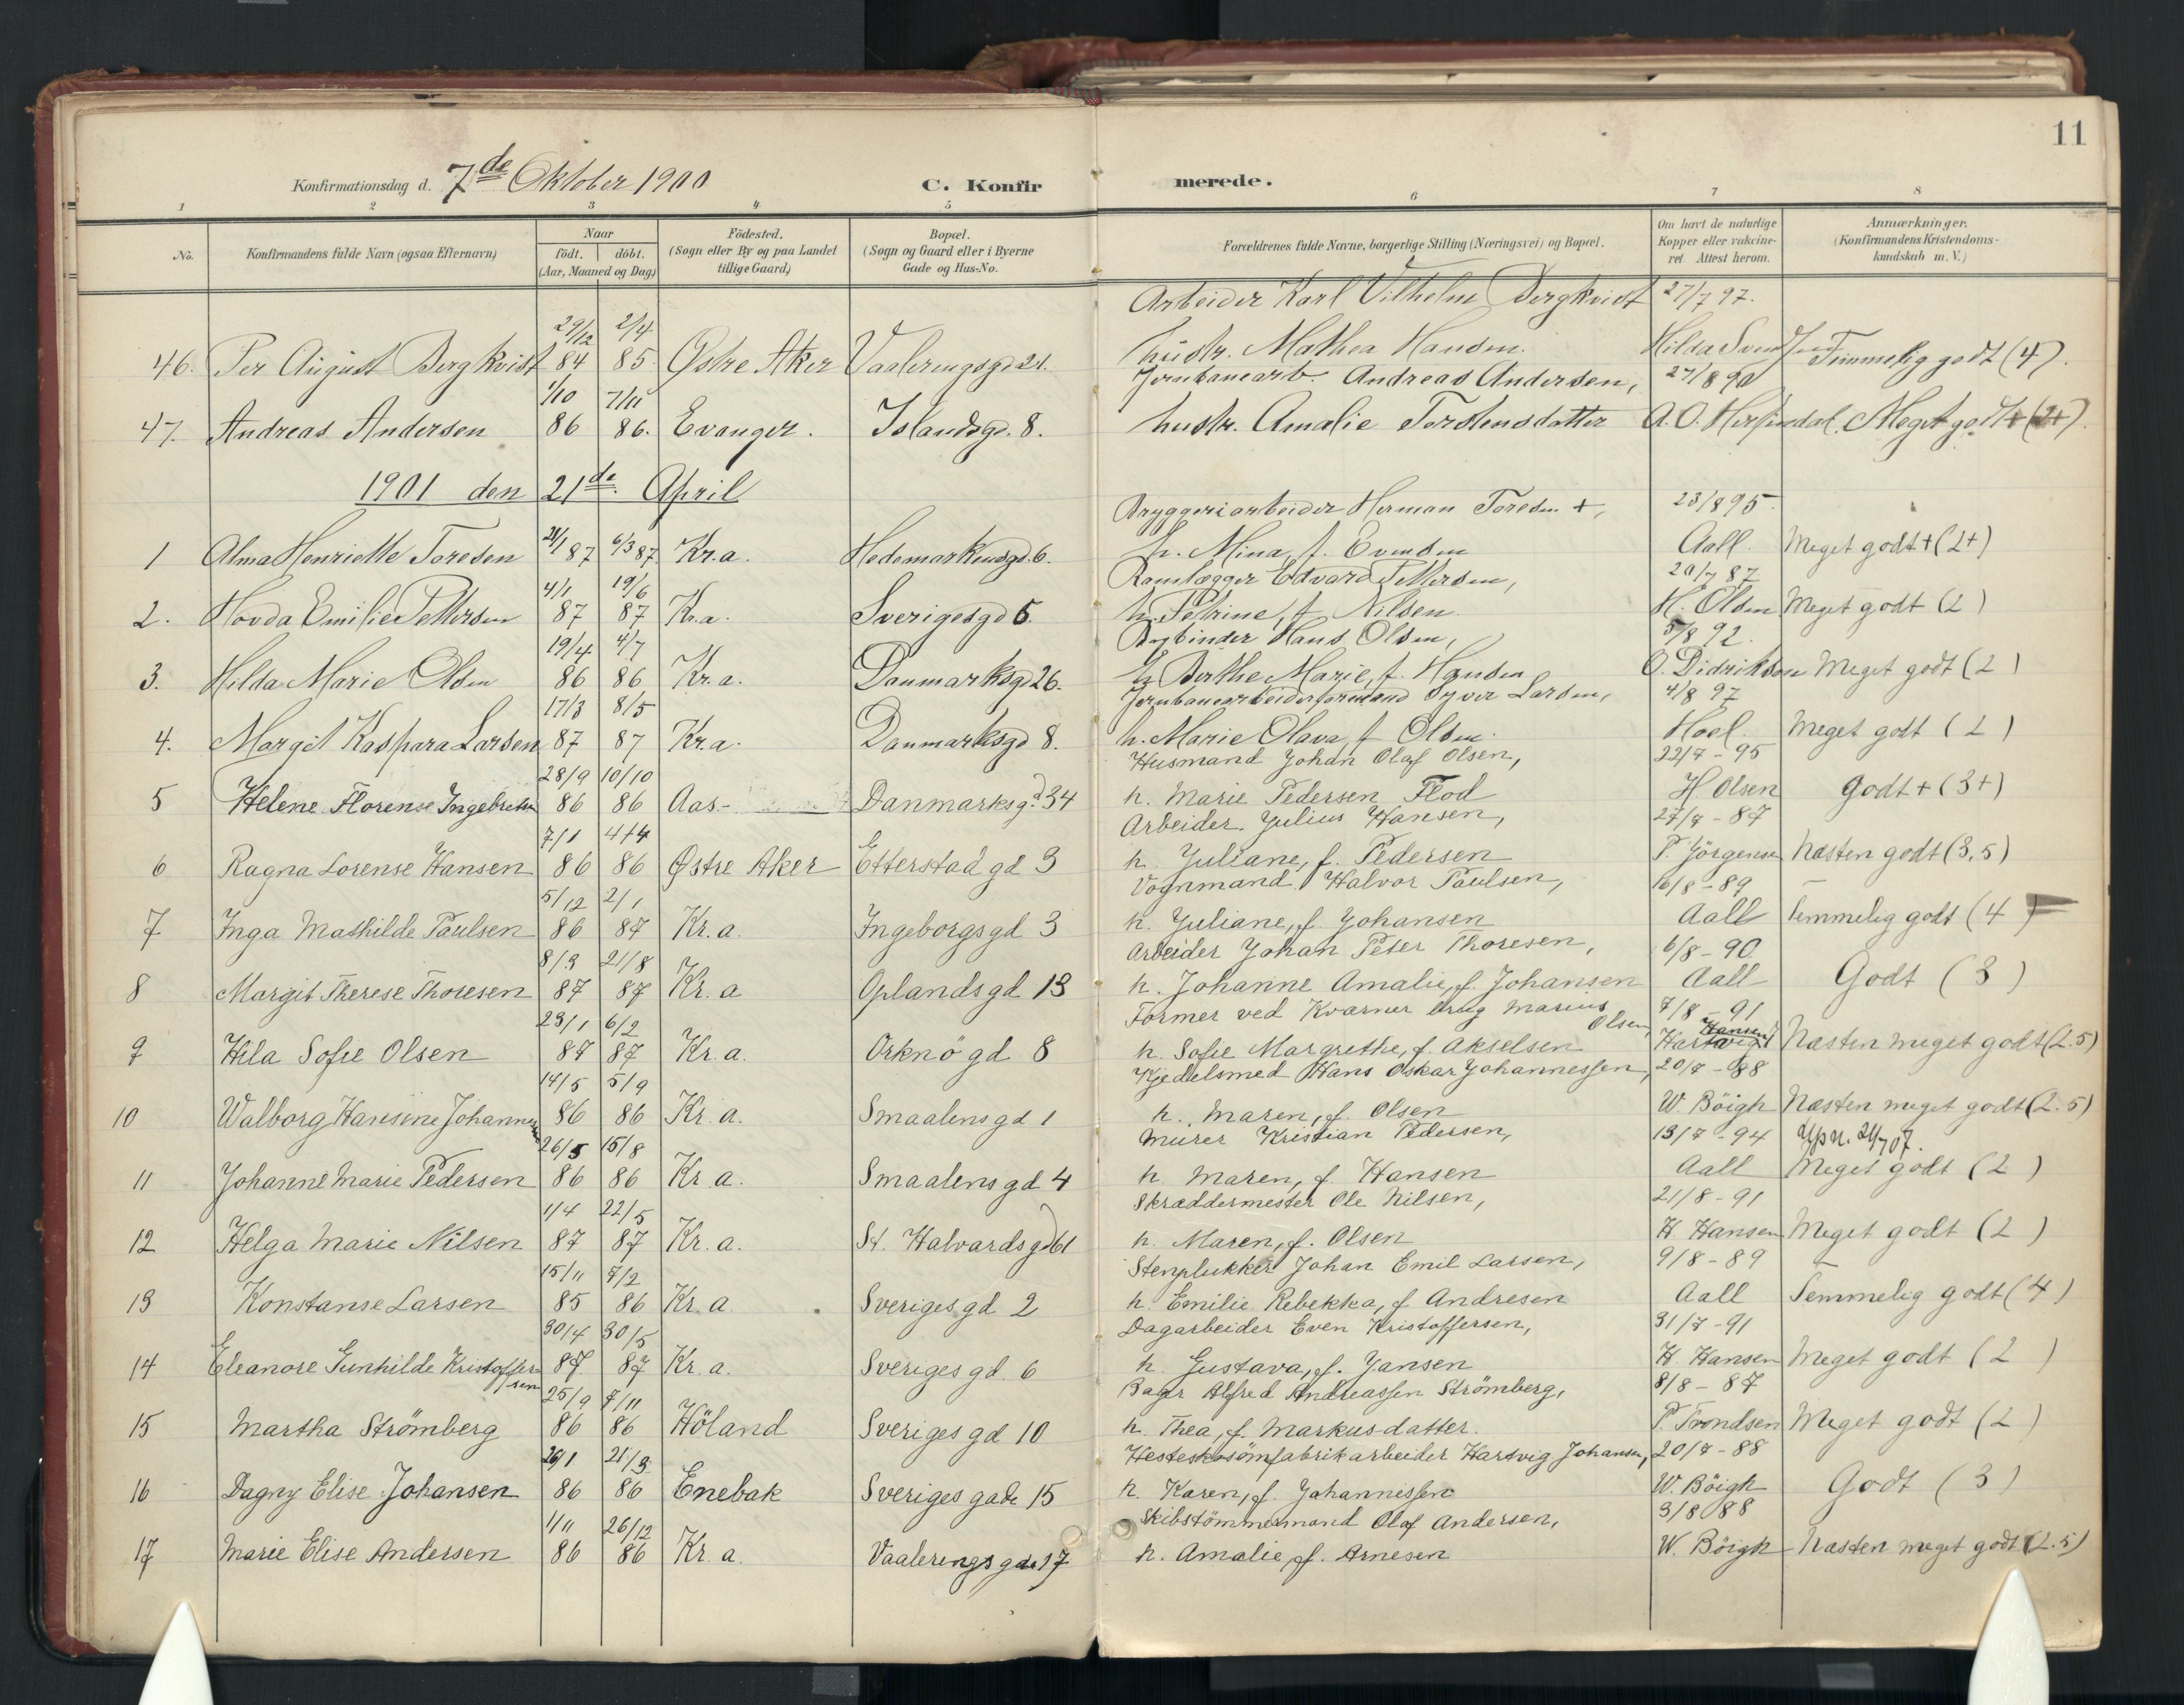 11
Konfirmationsdag d. 7de Oktober 1900 C. Konfirmerede.
1 2 3 4 5 6 7 8
No. Konfirmandens fulde Navn (ogsaa Efternavn) Naar födt. döbt. (Aar, Maaned og Dag) Födested. (Sogn eller By og paa Landet tillige Gaard) Bopæl. (Sogn og Gaard eller i Byerne Gade og Hus-No. Forældrenes fulde Navne, borgerlige Stilling (Næringsvei) og Bopæl. Om havt de naturlige Kopper eller vakcineret. Attest herom. Anmærkninger. (Konfirmandens Kristendomskundskab m. V.)
29/12 2/4 Arbeider Karl Vilhelm Bergkvist 27/7 97.
46. Per August Bergkvist 84 85. Østre Aker Vaalerengsgd 21. hustr. Mathea Hansen. Hilda Svendsen Temmelig godt (4).
1/10 7/11 Jernbanearb. Andreas Andersen, 27/8 90
47. Andreas Andersen 86 86. Evanger. Islandsgd. 8. hustr. Amalie Torstensdatter A. O. Meget godt + (2+).
1901 den 21de April
21/1 6/3 Bryggeriarbeider Herman Toresen +, 23/8 95.
1 Alma Henriette Toresen 87 87 Kr.a. Hedemarkensgd. 6. h. Mina, f. Evensen Aall. Meget godt + (2+)
4/1 19/6 Edvard Pettersen, 20/7 87
2. Hovda Emilie Pettersen 87 87 Kr.a. Sverigesgd 5. h. Petrine, f. Nilsen. H. Olsen Meget godt (2)
19/4 4/7 Hans Olsen, 5/8 92.
3. Hilda Marie Olsen 86 86 Kr.a. Danmarksgd 26. h. Berthe Marie, f. Hansen O. Didriksen Meget godt (2)
17/3 8/5 Jernbanearbeiderformand Syver Larsen, 4/8 97
4. Margit Kaspara Larsen 87 87 Kr.a. Danmarksgd 8. h. Marie Olava f. Olsen. Hoel. Meget godt (2)
28/9 10/10 Husmand Johan Olaf Olsen, 22/7 - 95
5 Helene Florense Ingebretsen 86 86 Aas- Danmarksgd. 34 h. Marie Pedersen Flod H. Olsen Godt + (3+)
7/1 4/4 Arbeider Julius Hansen, 27/7 - 87
6 Ragna Lorense Hansen 86 86 Østre Aker Etterstad gd 3 h. Juliane, f. Pedersen P. Jörgensen Næsten godt (3,5)
5/12 2/1 Vognmand Halvor Paulsen, 16/8 - 89
7 Inga Mathilde Paulsen 86 87 Kr.a. Ingeborgs gd 3 h. Juliane, f. Johansen Aall Temmelig godt (4)
8/3 21/8 Arbeider Johan Peter Thoresen, 6/8 - 90
8 Margit Therese Thoresen 87 87 Kr.a Oplands gd 13 h. Johanne Amalie, f. Johansen Aall Godt (3)
23/1 6/2 Former ved Kværner brug Marius Olsen, 7/8 - 91
9 Hila Sofie Olsen 87 87 Kr.a. Orknö gd 8 h. Sofie Margrethe, f. Akselsen Hartvig Hansen Næsten meget godt (2.5)
14/5 5/9 Kjedelsmed Hans Oskar Johannessen, 20/7 - 88
10 Walborg Hansine Johannessen 86 86 Kr.a. Smaalens gd 1 h. Maren, f. Olsen W. Böigh Næsten meget godt (2.5)
26/5 15/8 Murer Kristian Pedersen, 13/7 - 94
11 Johanne Marie Pedersen 86 86 Kr.a. Smaalens gd 4 h. Maren, f. Hansen Aall Meget godt (2)
1/4 22/5 Skræddermester Ole Nilsen, 21/8 - 91
12 Helga Marie Nilsen 87 87 Kr.a. St. Halvards gd 61 h. Maren, f. Olsen H. Hansen Meget godt (2)
15/11 7/2 Stenplukker Johan Emil Larsen, 9/8 - 89
13 Konstanse Larsen 85 86 Kr.a. Sveriges gd 2 h. Emilie Rebekka, f. Andresen Aall Temmelig godt (4)
30/4 30/5 Dagarbeider Even Kristoffersen, 31/7 - 91
14 Eleanore Gunhilde Kristoffersen 87 87 Kr.a. Sveriges gd. 6 h. Gustava, f. Jansen H. Hansen Meget godt (2)
25/9 7/11 Bager Alfred Andreassen Strömberg, 8/8 - 87
15 Martha Strömberg 86 86 Höland Sveriges gd 10 h. Thea, f. Markusdatter. P. Trondsen Meget godt (2)
26/1 21/3 Hesteskosömfabrikarbeider Hartvig Johansen, 20/7 - 88
16 Dagny Elise Johansen 86 86 Enebak Sveriges gade 15 h. Karen, f. Johannessen W. Böigh Godt (3)
1/11 26/12 Skibstömmermand Olaf Andersen, 3/8 88
17 Marie Elise Andersen 86 86 Kr.a. Vaalerengs gade 17 h. Amalie, f. Arnesen W. Böigh Næsten meget godt (2.5)